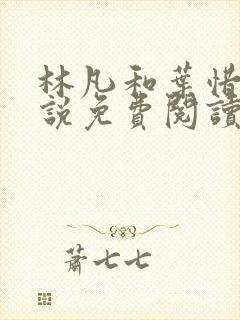 林凡和葉惜
說免費閱讀
蕭七七